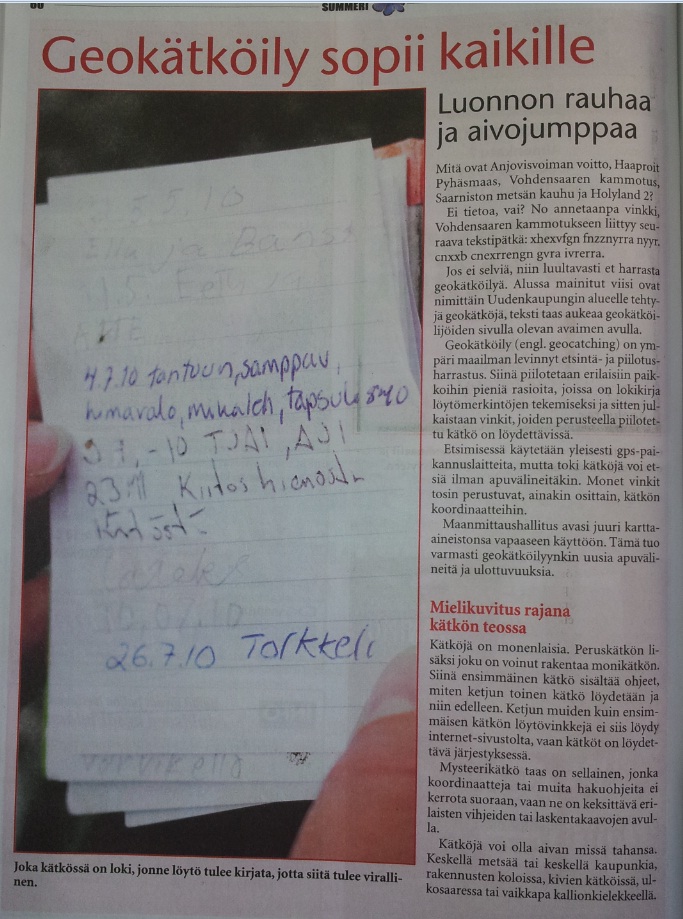 SUMMERI
Geokätköily sopii kaikille
5.5.10
Ella ja
4.7.10 tontuun, samppau,
humavalo, mikaleh, tapsula
-10 TJAI, AJI
Kiitos hienosta
26.7.10 Torkkeli
Joka kätkössä on loki, jonne löytö tulee kirjata, jotta siitä tulee viralli-
nen.
Luonnon rauhaa
ja aivojumppaa
Mitä ovat Anjovisvoiman voitto, Haaproit
Pyhäsmaas, Vohdensaaren kammotus,
Saarniston metsän kauhu ja Holyland 2?
Ei tietoa, vai? No annetaanpa vinkki,
Vohdensaaren kammotukseen liittyy seu-
raava tekstipätkä: xhexvfgn fnzznyrra nyyr,
cnxxb cnexrrengn gvra ivrerra.
Jos ei selviä, niin luultavasti et harrasta
geokätköilyä. Alussa mainitut viisi ovat
nimittäin Uudenkaupungin alueelle tehty-
jä geokätköjä, teksti taas aukeaa geokätköi-
lijöiden sivulla olevan avaimen avulla.
Geokätköily (engl. geocatching) on ym-
päri maailman levinnyt etsintä- ja piilotus-
harrastus. Siinä piilotetaan erilaisiin paik-
koihin pieniä rasioita, joissa on lokikirja
löytömerkintöjen tekemiseksi ja sitten jul-
kaistaan vinkit, joiden perusteella piilotet-
tu kätkö on löydettävissä.
Etsimisessä käytetään yleisesti gps-pai-
kannuslaitteita, mutta toki kätköjä voi et-
siä ilman apuvälineitäkin. Monet vinkit
tosin perustuvat, ainakin osittain, kätkön
koordinaatteihin.
Maanmittaushallitus avasi juuri kartta-
aineistonsa vapaaseen käyttöön. Tämä tuo
varmasti geokätköilyynkin uusia apuväli-
neitä ja ulottuvuuksia.
Mielikuvitus rajana
kätkön teossa
Kätköjä on monenlaisia. Peruskätkön li-
säksi joku on voinut rakentaa monikätkön.
Siinä ensimmäinen kätkö sisältää ohjeet,
miten ketjun toinen kätkö löydetään ja
niin edelleen. Ketjun muiden kuin ensim-
mäisen kätkön löytövinkkejä ei siis löydy
internet-sivustolta, vaan kätköt on löydet-
tävä järjestyksessä.
Mysteerikätkö taas on sellainen, jonka
koordinaatteja tai muita hakuohjeita ei
kerrota suoraan, vaan ne on keksittävä eri-
laisten vihjeiden tai laskentakaavojen avul-
la.
Kätköjä voi olla aivan missä tahansa.
Keskellä metsää tai keskellä kaupunkia,
rakennusten koloissa, kivien kätköissä, ul-
kosaaressa tai vaikkapa kallionkielekkeellä.